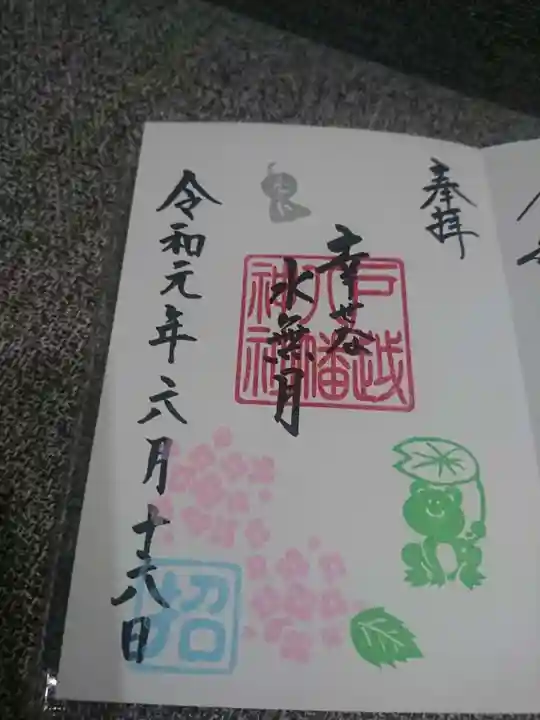 奉拝
幸芽
水無月
戸越
八幡
神社
令和元年六月十六日
招